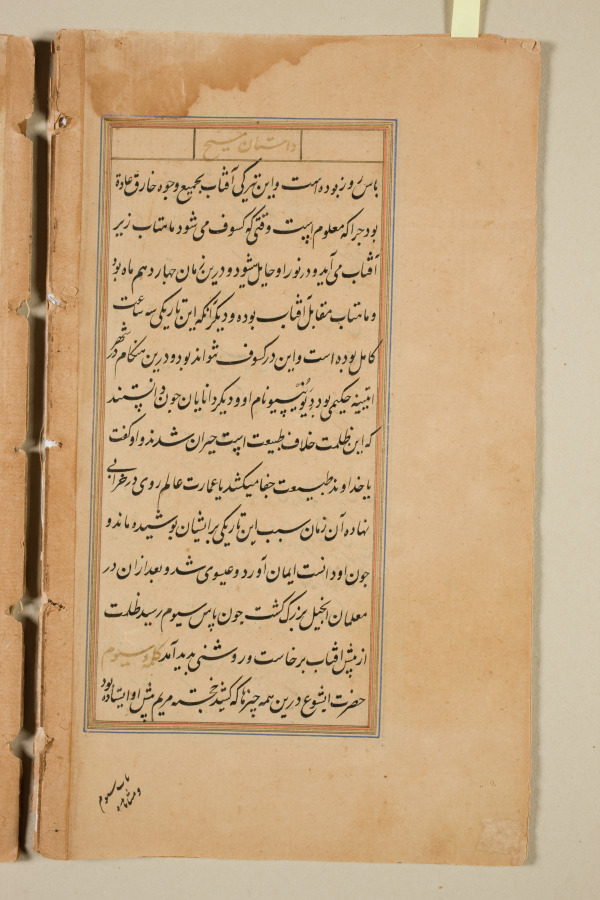 داستان مسیح
باس روز بوده است و این تیرگی آفتاب بجمیع وجوه خارق عادة
بود جرا که معلوم است وقتی که کسوف می شود ماهتاب زیر
آفتاب می آید و در نور او حایل میشود و درین زمان جهاردهم ماه بود
و ماهتاب مقابل آفتاب بوده و دیکر آنکه این تاریکی سه ساعت
کامل بوده است و این در کسوف نتواند بود و درین هنکام در شهر
اتینیه حکیمی بود نام او و دیکر دانایان جون دانستند
که این ظلمت خلاف طبیعت است حیران شدند و او کفت
یا خداوند طبیعت جفا میکشد یا عمارت عالم روی در خرابی
نهاده آن زمان سبب این تاریکی برایشان بوشیده ماند و
جون او دانست ایمان آورد و عیسوی شد و بعد از ان در
معلمان انجیل بزرک کشت جون باس سیوم رسید ظلمت
از پیش آفتاب برخاست و روشنی بدید آمد کلمه سیوم
حضرت ایشوع درین همه جیزها که کشید خجسته مریم پیش او ایستاده بود
باب سیوم